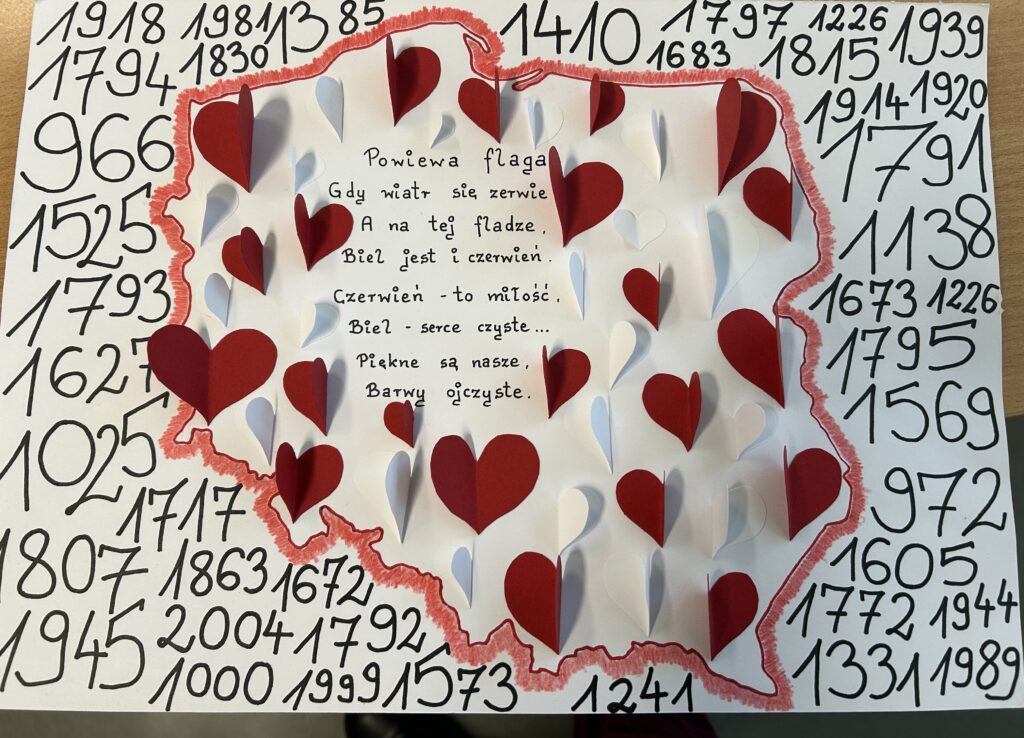 1918 1981 1385 1410 1797 1226 1939
1794 1830 1683 1815
1914 1920
966 1791
1525 1138
1793 1673 1226
1627 1795
1025 1569
Powiewa flaga
Gdy wiatr się zerwie
A na tej fladze,
Biel jest i czerwień.
Czerwień - to miłość,
Biel - serce czyste...
Piękne są nasze,
Barwy ojczyste.
1717 972
1807 1863 1672 1605
1945 2004 1792 1772 1944
1000 1999 1573 1241 1331 1989